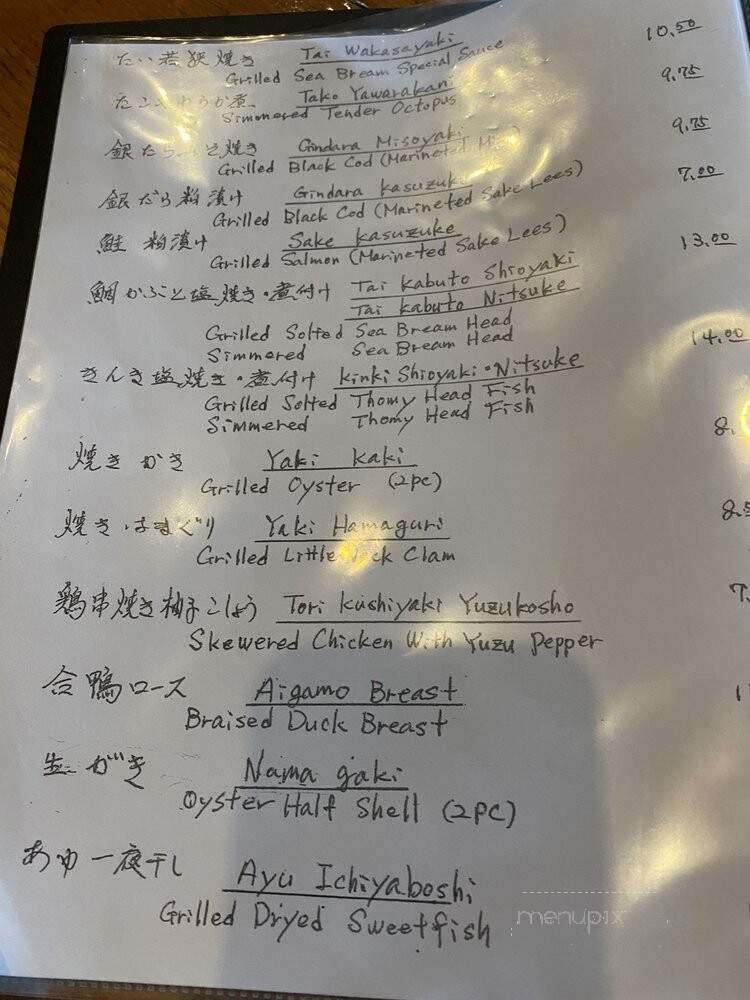 たい若狭焼き Tai Wakasayaki 10.50
Grilled Sea Bream Special Sauce
たこやわらか煮 Tako Yawarakani 9.75
Simmered Tender Octopus
銀だらみそ焼き Gindara Misoyaki 9.75
Grilled Black Cod (Marineted
銀だら粕漬け Gindara Kasuzuke 7.00
Grilled Black Cod (Marineted Sake Lees)
鮭 粕漬け Sake Kasuzuke
Grilled Salmon (Marineted Sake Lees)
鯛かぶと塩焼き・煮付け Tai kabuto Shioyaki 13.00
Tai kabuto Nitsuke
Grilled Solted Sea Bream Head
Simmered Sea Bream Head
きんき塩焼き・煮付け Kinki Shioyaki・Nitsuke 14.00
Grilled Solted Thomy Head Fish
Simmered Thomy Head Fish
焼きがき Yaki kaki 8.
Grilled Oyster (2pc)
焼きはまぐり Yaki Hamaguri 8.5
Grilled Little Clam
鶏串焼き柚子こしょう Tori Kushiyaki Yuzukosho 7.
Skewered Chicken With Yuzu Pepper
合鴨ロース Aigamo Breast
Braised Duck Breast
生がき Nama gaki
Oyster Half Shell (2PC)
あゆ一夜干し Ayu Ichiyaboshi
Grilled Dryed Sweetfish
menupix